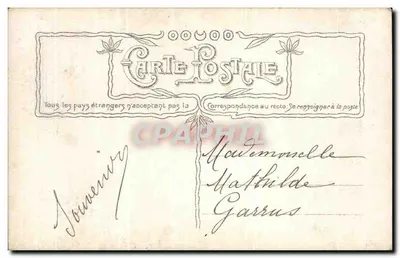 CARTE POSTALE
Tous les pays étrangers n'acceptent pas la Correspondance au recto. Se renseigner à la poste
Souvenir
Mademoiselle
Mathilde
Garrus